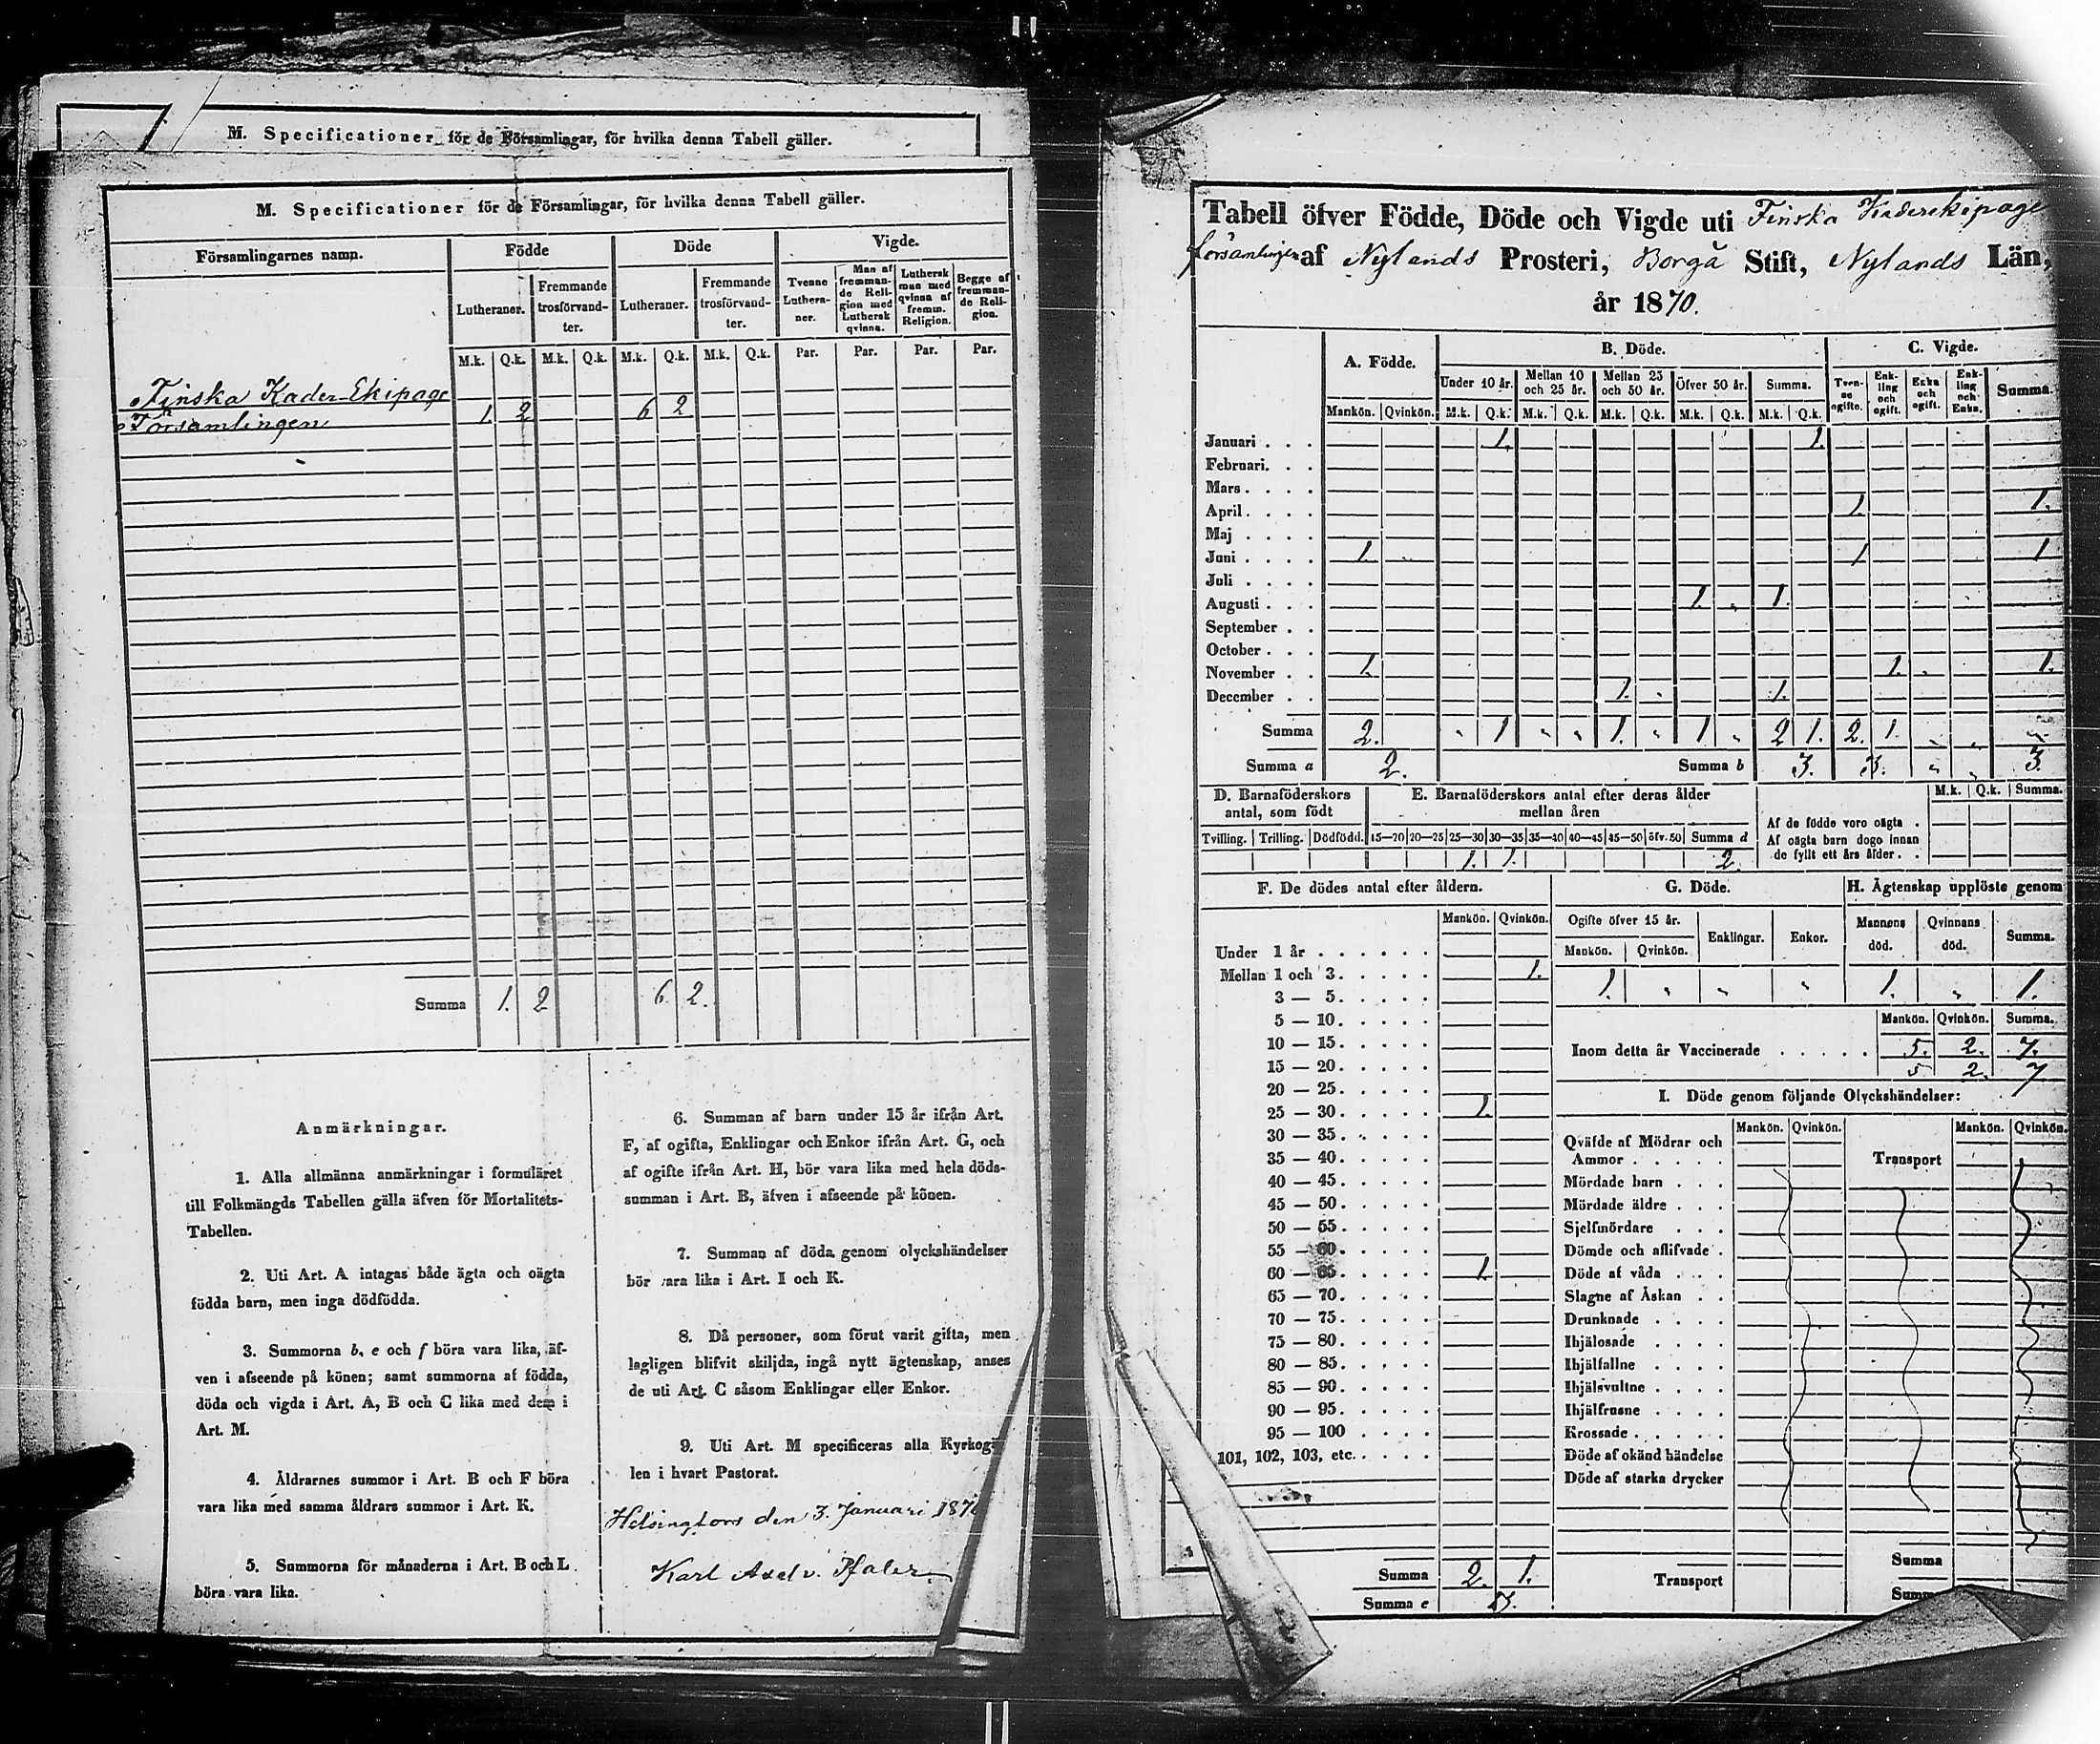 M. Specificationer för de Församlingar, för hvilka denna Tabell gäller.
M. Specificationer för de Församlingar, för hvilka denna Tabell gäller.
Församlingarnes namn. Födde Döde Vigde.
Lutheraner. Fremmande trosförvand- ter. Lutheraner. Fremmande trosförvand- ter. Tvenne Luthera- ner. Man af fremman- de Reli- gion med Luthersk qvinna. Luthersk man med qvinna af fremm. Religion. Begge af fremman- de Reli- gion.
M.k. Q.k. M.k. Q.k. M.k. Q.k. M.k. Q.k. Par. Par. Par. Par.
Finska Kader-Ekipage
Församlingen 1. 2 6 2
Summa 1. 2 6 2.
Anmärkningar.
1. Alla allmänna anmärkningar i formuläret
till Folkmängds Tabellen gälla äfven för Mortalitets-
Tabellen.
2. Uti Art. A intagas både ägta och oägta
födda barn, men inga dödfödda.
3. Summorna b, e och f böra vara lika, äf-
ven i afseende på könen; samt summorna af födda,
döda och vigda i Art. A, B och C lika med dem i
Art. M.
4. Åldrarnes summor i Art. B och F böra
vara lika med samma åldrars summor i Art. K.
5. Summorna för månaderna i Art. B och L
böra vara lika.
6. Summan af barn under 15 år ifrån Art.
F, af ogifta, Enklingar och Enkor ifrån Art. G, och
af ogifte ifrån Art. H, bör vara lika med hela döds-
summan i Art. B, äfven i afseende på könen.
7. Summan af döda genom olyckshändelser
bör vara lika i Art. I och K.
8. Då personer, som förut varit gifta, men
lagligen blifvit skiljda, ingå nytt ägtenskap, anses
de uti Art. C såsom Enklingar eller Enkor.
9. Uti Art. M specificeras alla
len i hvart Pastorat.
Helsingfors den 3. Januari 187
Karl Axel v. Pfaler
Tabell öfver Födde, Döde och Vigde uti Finska Kaderekipage
församlingen af Nylands Prosteri, Borgå Stift, Nylands Län,
år 1870.
A. Födde. B. Döde. C. Vigde.
Under 10 år. Mellan 10 och 25 år. Mellan 25 och 50 år. Öfver 50 år. Summa. Tven- ne ogifte. Enk- ling och ogift. Enka och ogift. Enk- ling och Enka. Summa.
Mankön. Qvinkön. M.k. Q.k. M.k. Q.k. M.k. Q.k. M.k. Q.k. M.k. Q.k.
Januari . . . 1. 1.
Februari. . .
Mars . . . .
April . . . . 1. 1.
Maj . . . .
Juni . . . . 1. 1 1
Juli . . . .
Augusti . . . 1. " 1.
September . .
October . . .
November . . 1. 1. 1.
December . . 1. 1.
Summa 2. " 1 " " 1. " 1 " 2 1. 2. 1. " "
Summa a 2. Summa b 3. 3. " " 3.
D. Barnaföderskors antal, som födt
Tvilling. Trilling. Dödfödd.
E. Barnaföderskors antal efter deras ålder mellan åren
15—20 20—25 25—30 30—35 35—40 40—45 45—50 öfv. 50 Summa d
1. 1. 2.
M.k. Q.k. Summa.
Af de födde voro oägta .
Af oägta barn dogo innan
de fyllt ett års ålder . .
F. De dödes antal efter åldern.
Mankön. Qvinkön.
Under 1 år . . . . . .
Mellan 1 och 3. . . . . 1.
3 — 5. . . . .
5 — 10. . . . .
10 — 15. . . . .
15 — 20. . . . .
20 — 25. . . . .
25 — 30. . . . . 1.
30 — 35. . . . .
35 — 40. . . . .
40 — 45. . . . .
45 — 50. . . . .
50 — 55. . . . .
55 — 60. . . . .
60 — 65. . . . . 1.
65 — 70. . . . .
70 — 75. . . . .
75 — 80. . . . .
80 — 85. . . . .
85 — 90. . . . .
90 — 95. . . . .
95 — 100 . . . .
101, 102, 103, etc. . . . .
Summa 2. 1.
Summa e 3.
G. Döde.
Ogifte öfver 15 år. Enklingar. Enkor.
Mankön. Qvinkön.
1. " " "
H. Ägtenskap upplöste genom
Mannens död. Qvinnans död. Summa.
1. " 1.
Mankön. Qvinkön. Summa.
Inom detta år Vaccinerade . . . . . 5. 2. 7.
5 2. 7
I. Döde genom följande Olyckshändelser:
Mankön. Qvinkön. Mankön. Qvinkön.
Qväfde af Mödrar och
Ammor . . . . . Transport
Mördade barn . . .
Mördade äldre . . .
Sjelfmördare . . .
Dömde och aflifvade .
Döde af våda . . .
Slagne af Åskan . .
Drunknade . . . .
Ihjälosade . . . .
Ihjälfallne . . . .
Ihjälsvultne . . . .
Ihjälfrusne . . . .
Krossade . . . . .
Döde af okänd händelse
Döde af starka drycker
Summa
Transport